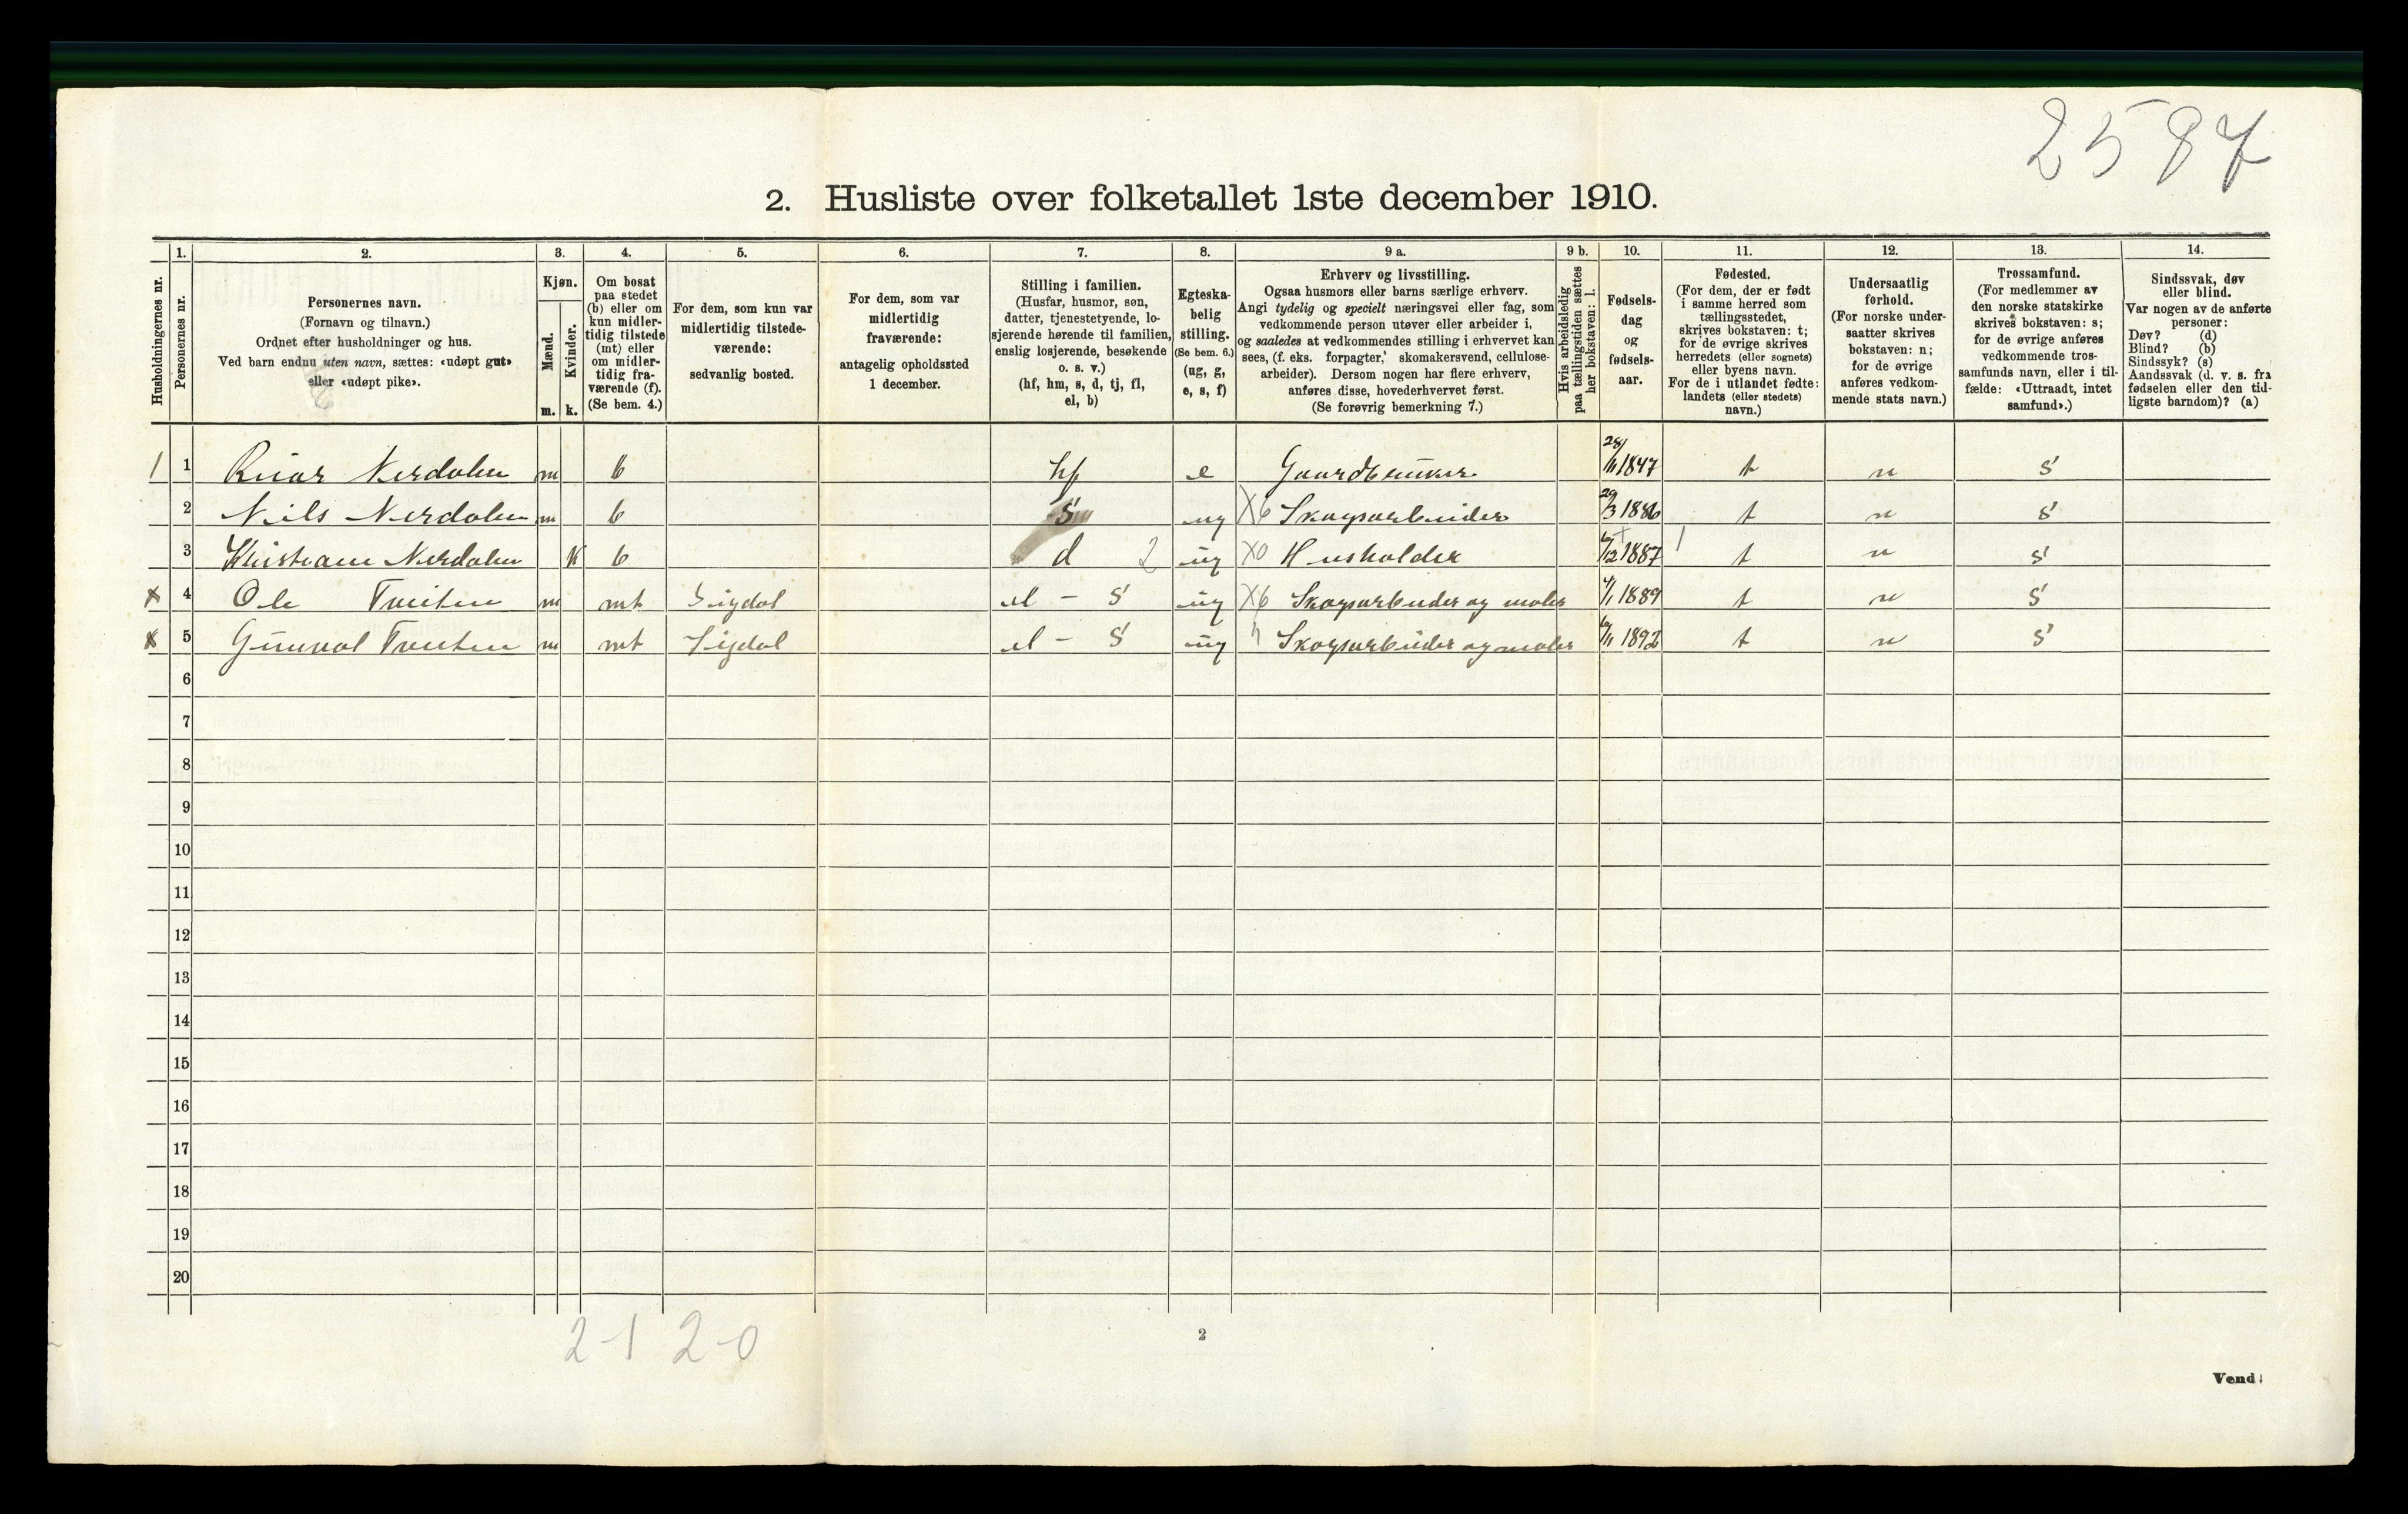 2587
2. Husliste over folketallet 1ste december 1910.
Husholdningernes nr.
1.
Personernes nr.
2.
Personernes navn.
(Fornavn og tilnavn.)
Ordnet efter husholdninger og hus.
Ved barn endnu uten navn, sættes: «udøpt gut»
eller «udøpt pike».
3.
Kjøn.
Mænd.
Kvinder.
m. k.
4.
Om bosat
paa stedet
(b) eller om
kun midler-
tidig tilstede
(mt) eller
om midler-
tidig fra-
værende (f).
(Se bem. 4.)
5.
For dem, som kun var
midlertidig tilstede-
værende:
sedvanlig bosted.
6.
For dem, som var
midlertidig
fraværende:
antagelig opholdssted
1 december.
7.
Stilling i familien.
(Husfar, husmor, søn,
datter, tjenestetyende, lo-
sjerende hørende til familien,
enslig losjerende, besøkende
o. s. v.)
(hf, hm, s, d, tj, fl,
el, b)
8.
Egteska-
belig
stilling.
(Se bem. 6.)
(ug, g,
e, s, f)
9 a.
Erhverv og livsstilling.
Ogsaa husmors eller barns særlige erhverv.
Angi tydelig og specielt næringsvei eller fag, som
vedkommende person utøver eller arbeider i,
og saaledes at vedkommendes stilling i erhvervet kan
sees, (f. eks. forpagter, skomakersvend, cellulose-
arbeider). Dersom nogen har flere erhverv,
anføres disse, hovederhvervet først.
(Se forøvrig bemerkning 7.)
9 b.
Hvis arbeidsledig
paa tællingstiden sættes
her bokstaven: l.
10.
Fødsels-
dag
og
fødsels-
aar.
11.
Fødested.
(For dem, der er født
i samme herred som
tællingsstedet,
skrives bokstaven: t;
for de øvrige skrives
herredets (eller sognets)
eller byens navn.
For de i utlandet fødte:
landets (eller stedets)
navn.)
12.
Undersaatlig
forhold.
(For norske under-
saatter skrives
bokstaven: n;
for de øvrige
anføres vedkom-
mende stats navn.)
13.
Trossamfund.
(For medlemmer av
den norske statskirke
skrives bokstaven: s;
for de øvrige anføres
vedkommende tros-
samfunds navn, eller i til-
fælde: «Uttraadt, intet
samfund».)
14.
Sindssvak, døv
eller blind.
Var nogen av de anførte
personer:
Døv? (d)
Blind? (b)
Sindssyk? (s)
Aandssvak (d. v. s. fra
fødselen eller den tid-
ligste barndom)? (a)
1 1 Nerdalen m b hf e Gaardbruker 28/11 1847 t n s
2 Nils Nerdalen m b s ug X6 Skogsarbeider 29/3 1886 t n s
3 Kristiane Nerdalen k b d 2 ug X0 Husholder 6/12 1887 1 t n s
x 4 Ole Tveiten m mt Sigdal el - s ug X6 Skogsarbeider og maler 4/1 1889 t n s
x 5 Gunval Tveiten m mt Sigdal el - s ug " Skogsarbeider og maler 6/11 1892 t n s
6
7
8
9
10
11
12
13
14
15
16
17
18
19
20
2-1 2-0
2
Vend!